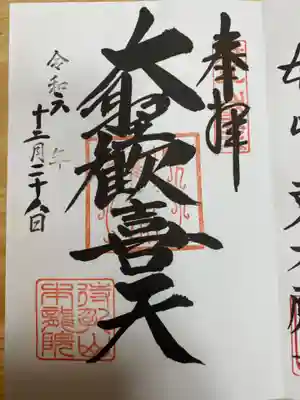 奉拝
大聖歡喜天
令和六年
十二月二十八日
待乳山
本龍院